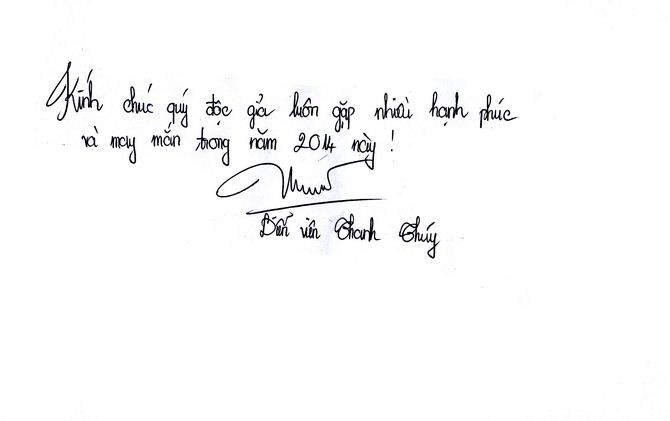 Kính chúc quý độc giả luôn gặp nhiều hạnh phúc
và may mắn trong năm 2014 này !
Diễn viên Thanh Thúy